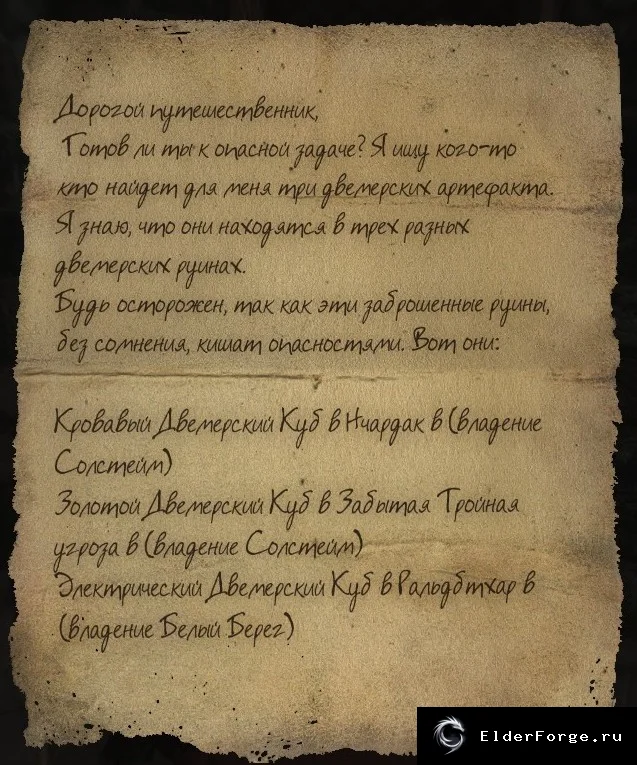 Дорогой путешественник,
Готов ли ты к опасной задаче? Я ищу кого-то
кто найдет для меня три двемерских артефакта.
Я знаю, что они находятся в трех разных
двемерских руинах.
Будь осторожен, так как эти заброшенные руины,
без сомнения, кишат опасностями. Вот они:
Кровавый Двемерский Куб в Нчардак в (владение
Солстейм)
Золотой Двемерский Куб в Забытая Тройная
угроза в (владение Солстейм)
Электрический Двемерский Куб в Ральдбтхар в
(владение Белый Берег)
ElderForge.ru